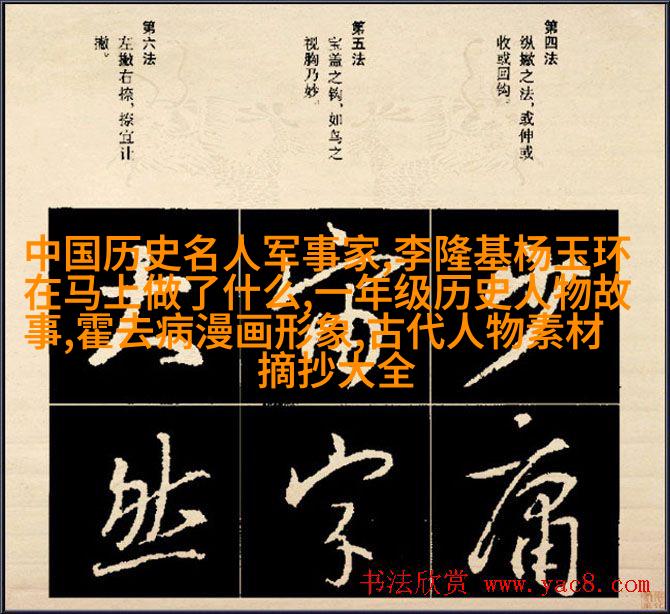 第四法
纵撇之法，或伸或
收或回钩。
第五法
宝盖之钩，如鸟之
视胸乃妙。
第六法
左撇右捺，捺宜让
撇。
中国历史名人军事家,李隆基杨玉环
在马上做了什么,一年级历史人物故
事,霍去病漫画形象,古代人物素材
摘抄大全
少
去
庸
字
然
书法欣赏 www.yac8.com